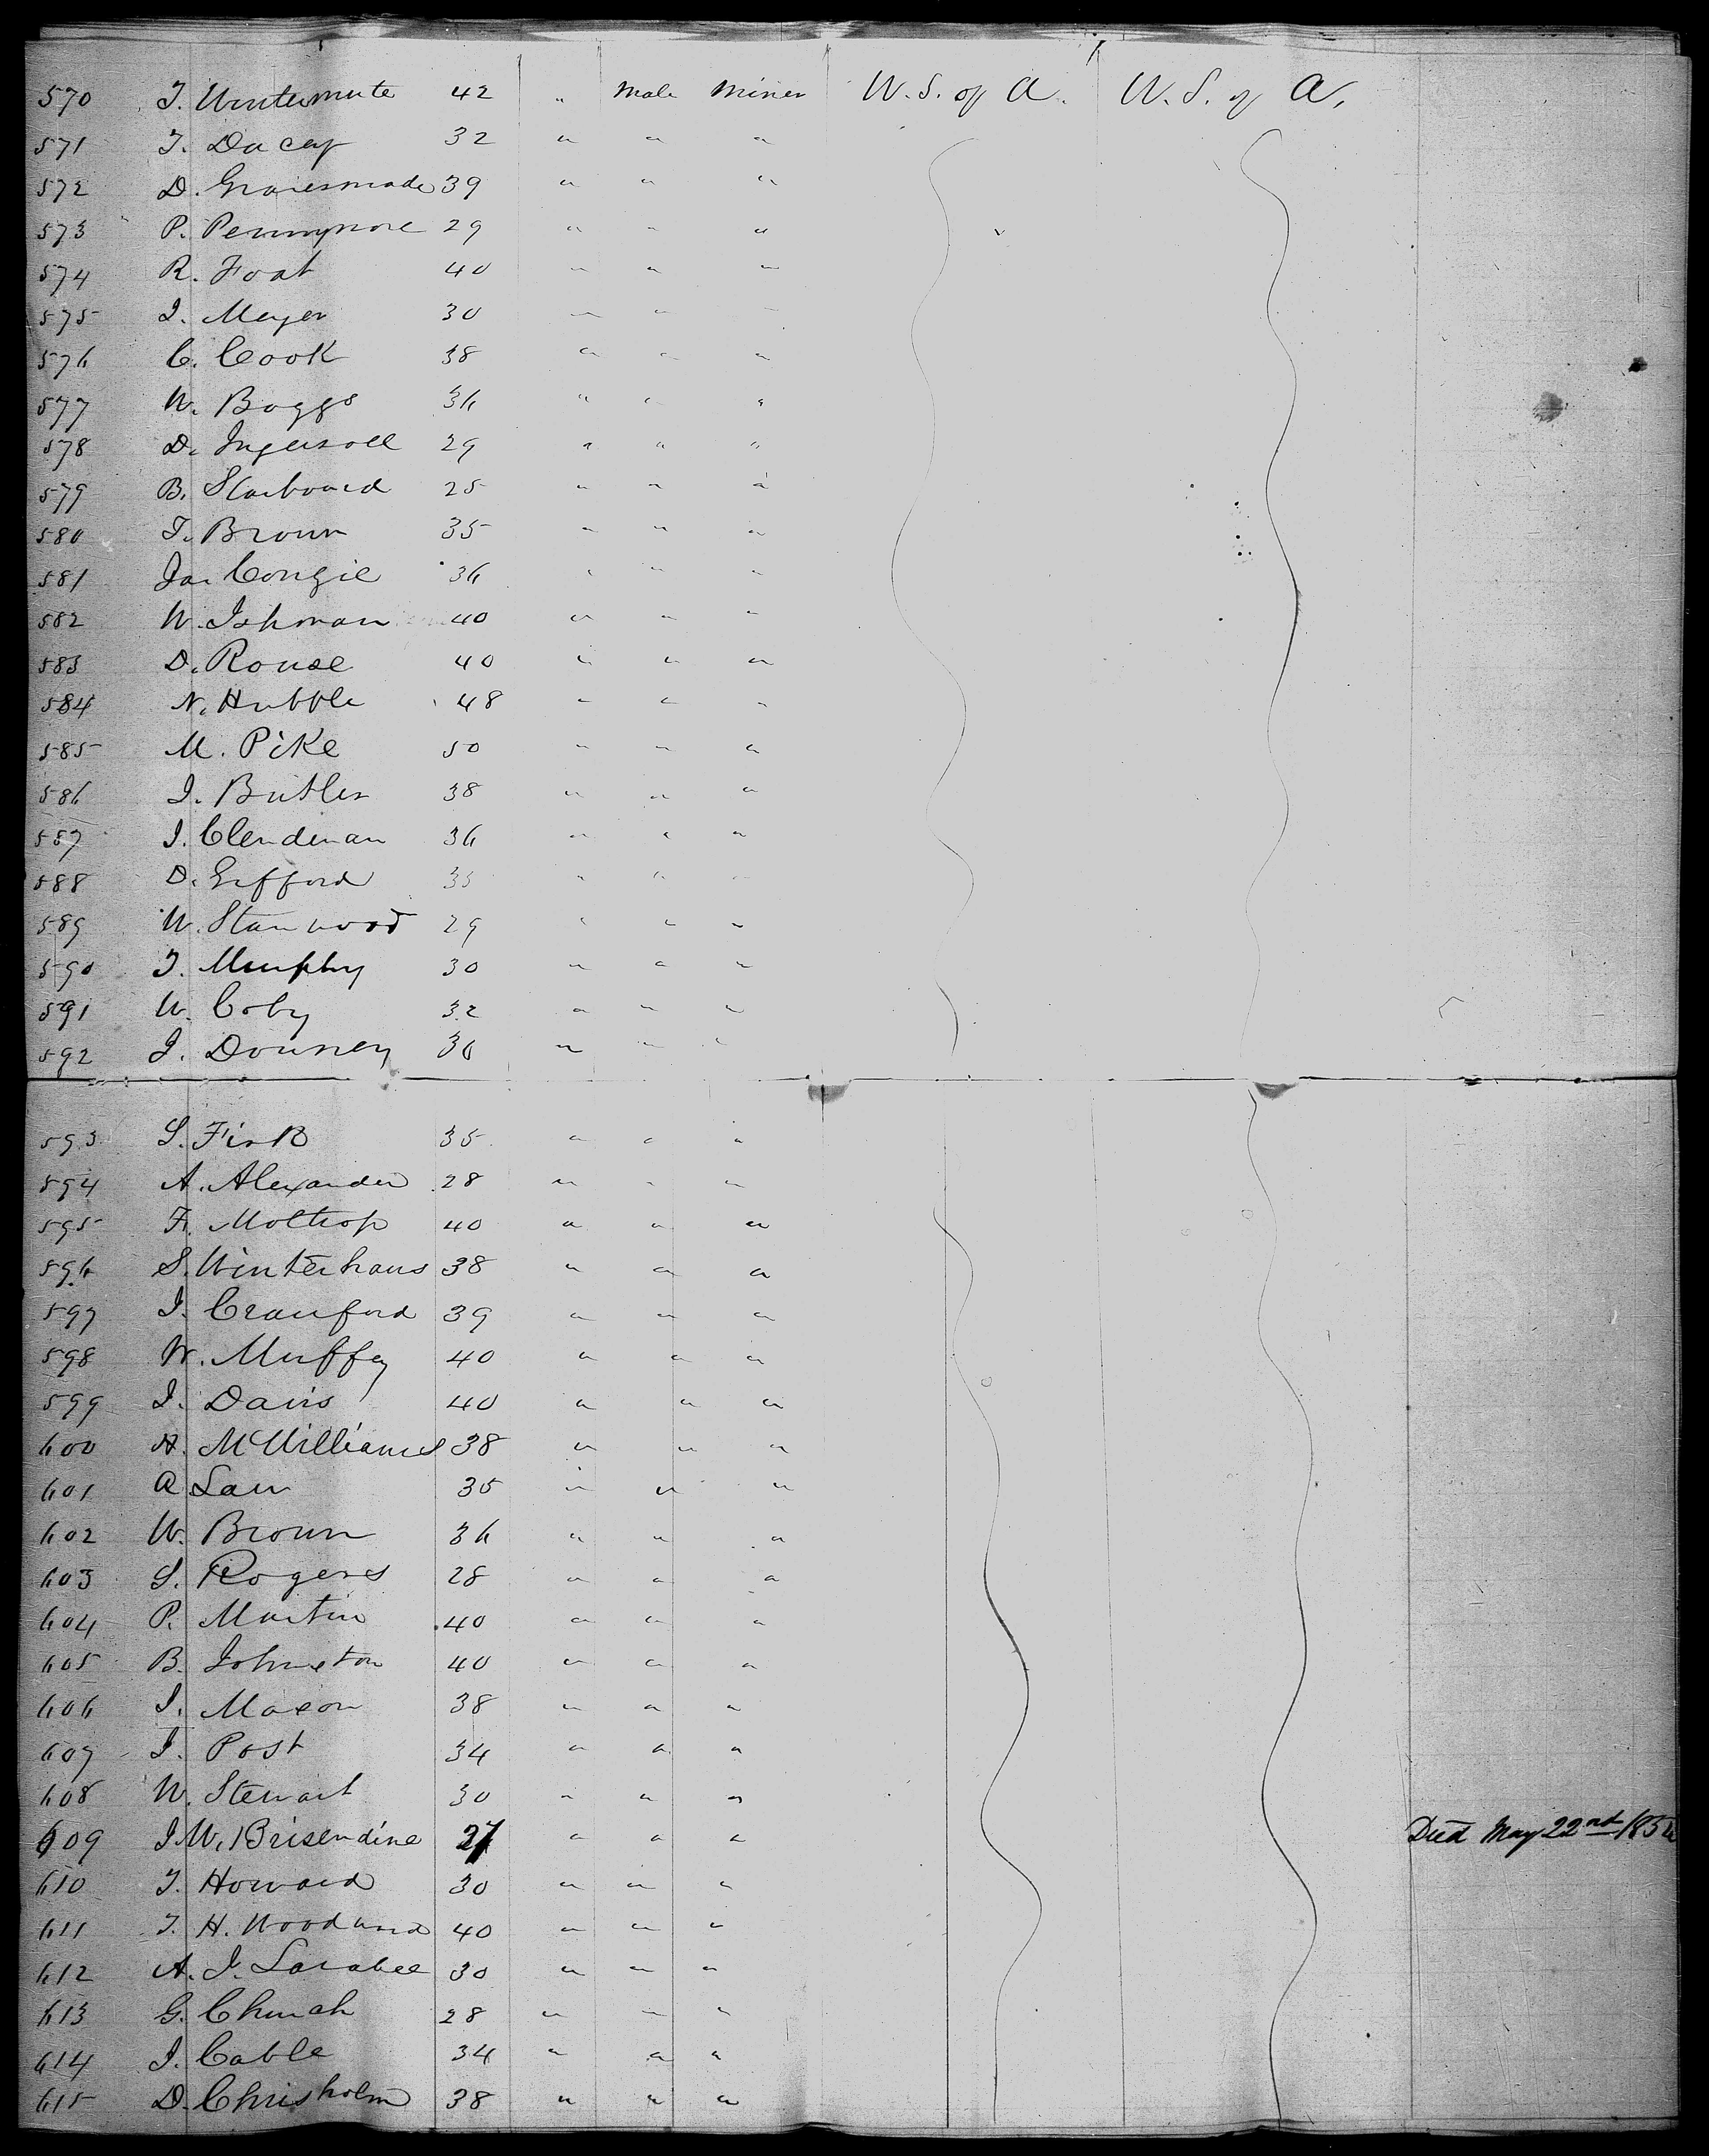 570 J. Wintermute 42 " Male Miner U.S. of A. U.S. of A.
571 J. Dacey 32 " " "
572 D. Gravesmade 39 " " "
573 P. Pennymore 29 " " "
574 R. Foat 40 " " "
575 J. Meyer 30 " " "
576 C. Cook 38 " " "
577 W. Boggs 36 " " "
578 D. Ingersoll 29 " " "
579 B. Starboard 25 " " "
580 J. Brown 35 " " "
581 Ja. Congie 36 " " "
582 W. Ishman 40 " " "
583 D. Rouse 40 " " "
584 N. Hubble 48 " " "
585 M. Pike 50 " " "
586 J. Butler 38 " " "
587 J. Clendenan 36 " " "
588 D. Gifford 35 " " "
589 W. Stanwood 29 " " "
590 J. Murphy 30 " " "
591 W. Coby 32 " " "
592 J. Downey 30 " " "
593 S. Fisk 35 " " "
594 A. Alexander 28 " " "
595 F. Moltrop 40 " " "
596 S. Winterhaus 38 " " "
597 J. Crauford 39 " " "
598 W. Muffey 40 " " "
599 J. Davis 40 " " "
600 H. McWilliams 38 " " "
601 A Law 35 " " "
602 W. Brown 36 " " "
603 S. Rogers 28 " " "
604 P. Martin 40 " " "
605 B. Johnston 40 " " "
606 J. Mason 38 " " "
607 J. Post 34 " " "
608 W. Stewart 30 " " "
609 J.W. Brisendine 27 " " " Died May 22nd 185
610 J. Howard 30 " " "
611 J. H. Woodward 40 " " "
612 A. J. Larabee 30 " " "
613 G. Church 28 " " "
614 J. Cable 34 " " "
615 D. Chrisholm 38 " " "